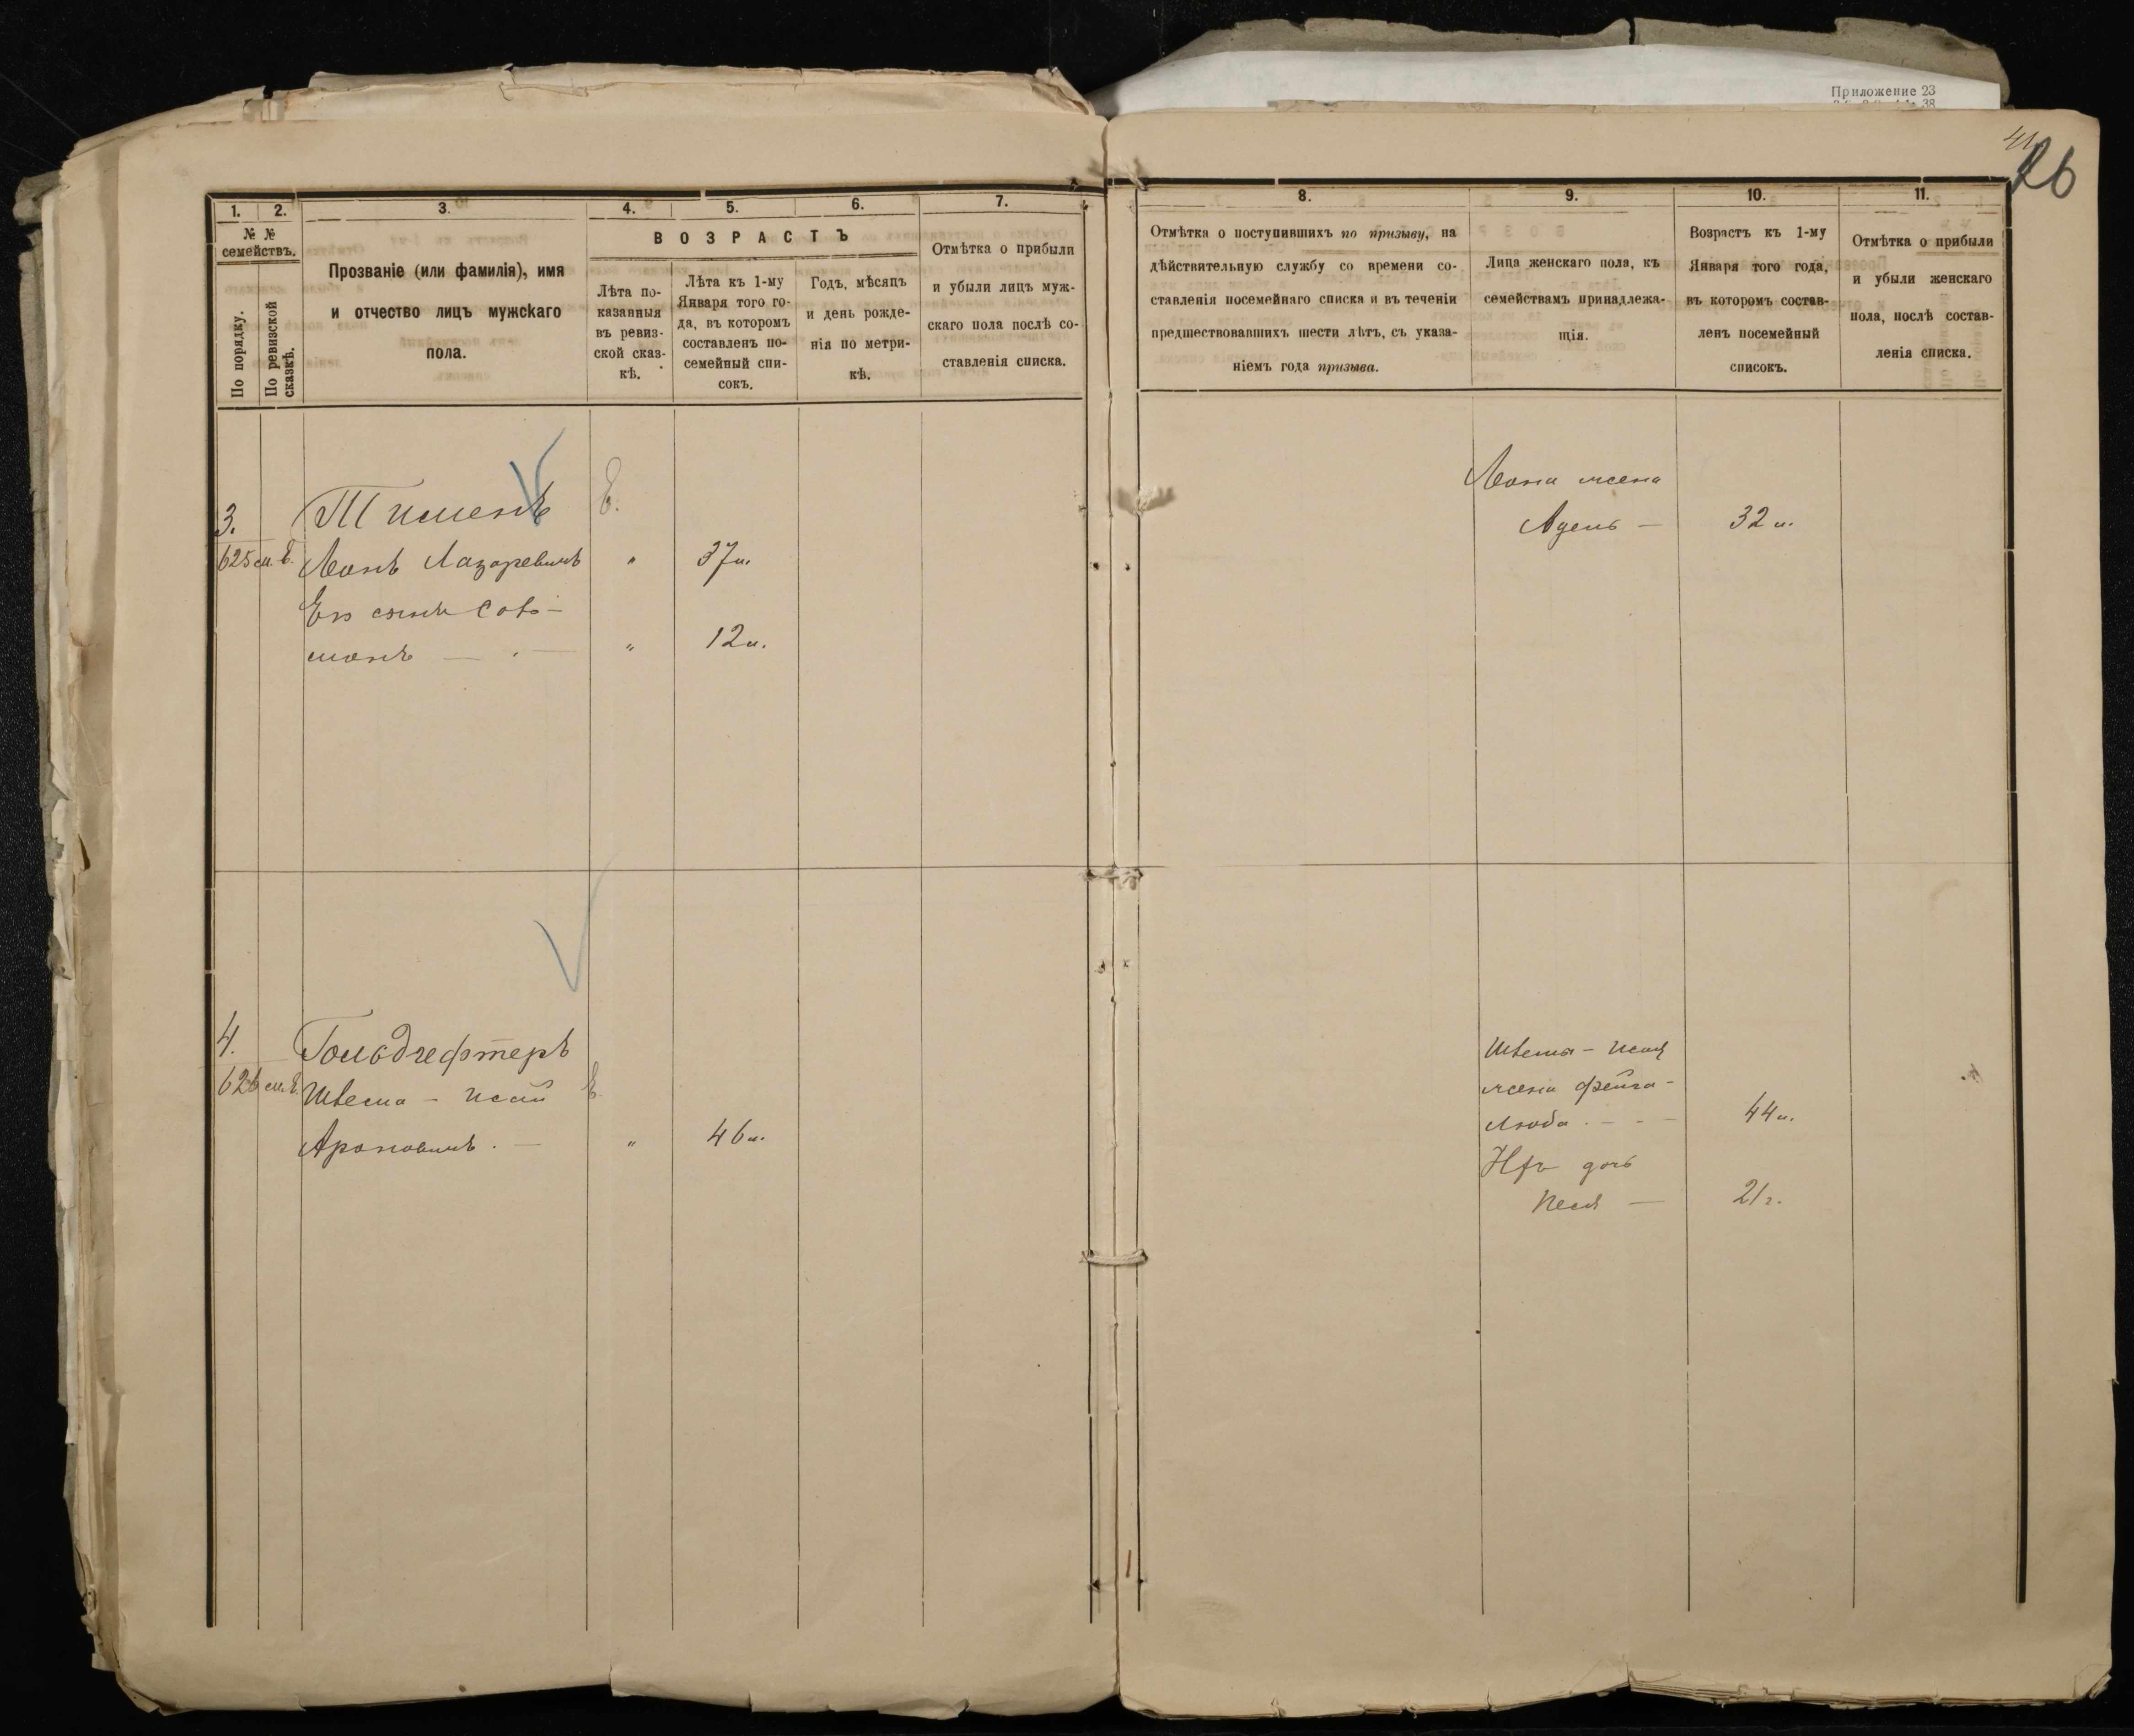 Приложение 23
41
26
1.
2.
3.
4.
5.
6.
7.
№ №
семействъ.
По порядку.
По ревизской сказкѣ.
Прозваніе (или фамилія), имя
и отчество лицъ мужскаго
пола.
ВОЗРАСТЪ
Лѣта по-
казанныя
въ ревиз-
ской сказ-
кѣ.
Лѣта къ 1-му
Января того го-
да, въ которомъ
составленъ по-
семейный спи-
сокъ.
Годъ, мѣсяцъ
и день рожде-
нія по метри-
кѣ.
Отмѣтка о прибыли
и убыли лицъ муж-
скаго пола послѣ со-
ставленія списка.
8.
9.
10.
11.
Отмѣтка о поступившихъ по призыву, на
дѣйствительную службу со времени со-
ставленія посемейнаго списка и въ теченіи
предшествовавшихъ шести лѣтъ, съ указа-
ніемъ года призыва.
Лица женскаго пола, къ
семействамъ принадлежа-
щія.
Возрастъ къ 1-му
Января того года,
въ которомъ состав-
ленъ посемейный
списокъ.
Отмѣтка о прибыли
и убыли женскаго
пола, послѣ состав-
ленія списка.
3.
625 см. Е.
Е.
Лазаревичъ " 37 л.
Его сынъ Соло-
монъ — " 12 л.
жена
Адель — 32 л.
4.
626 см. Е.
Исай Е.
Ароновичъ. — " 46 л.
жена Фейга-
Люба. - - - 44 л.
Ихъ дочь
Песя — 21 г.